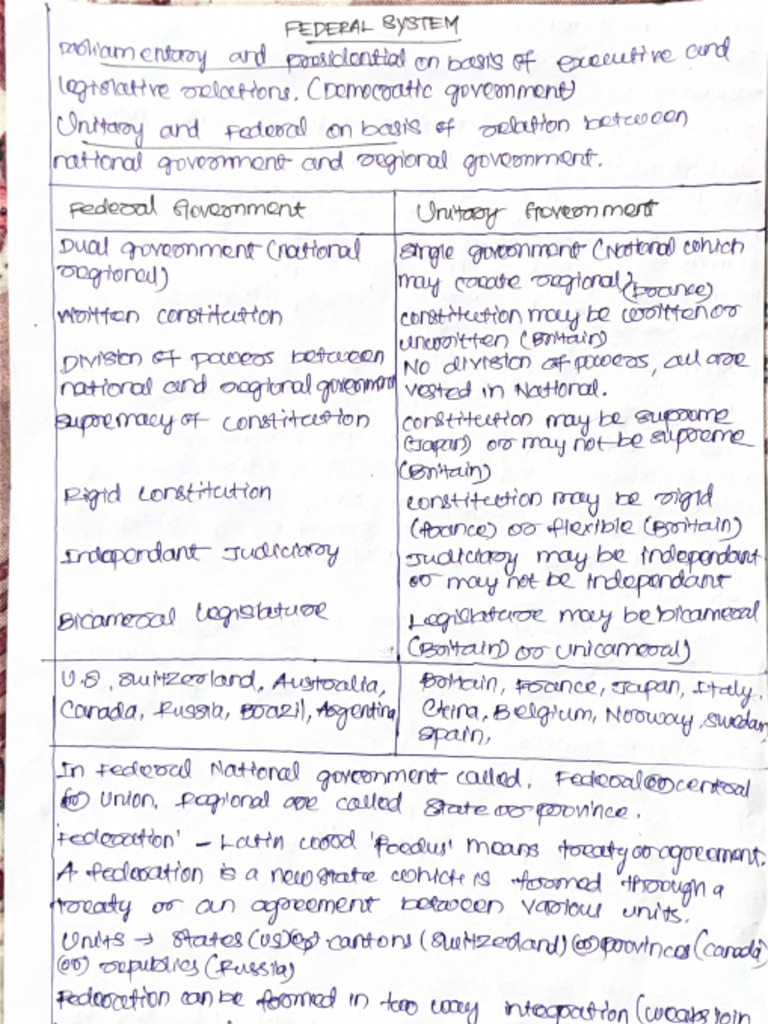 FEDERAL SYSTEM
Parliamentary and presidential on basis of executive and
legislative relations. (Democratic government)
Unitary and Federal on basis of relation between
national government and regional government.
Federal Government
Unitary Government
Dual government (national
regional)
single government (National which
may create regional) (France)
Written constitution
constitution may be written or
unwritten (Britain)
Division of powers between
national and regional government
No division of powers, all are
vested in National.
Supremacy of constitution
constitution may be supreme
(Japan) or may not be supreme
(Britain)
Rigid constitution
constitution may be rigid
(france) or flexible (Britain)
Independant Judiciary
Judiciary may be independant
or may not be independant
Bicameral legislature
Legislature may be bicameral
(Britain) or unicameral)
U.S, Switzerland, Australia,
Canada, Russia, Brazil, Argentina
Britain, France, Japan, Italy,
China, Belgium, Norway, Swedan,
Spain,
In Federal National government called. Federal (or) central
(or) Union. Regional are called state or province.
'Federation' – Latin word 'foedus' means treaty or agreement.
A federation is a new state which is formed through a
treaty or an agreement between various units.
Units → states (US) (or) cantons (Switzerland) (or) provinces (canada)
(or) republics (Russia)
Federation can be formed in two way integration (weaks join